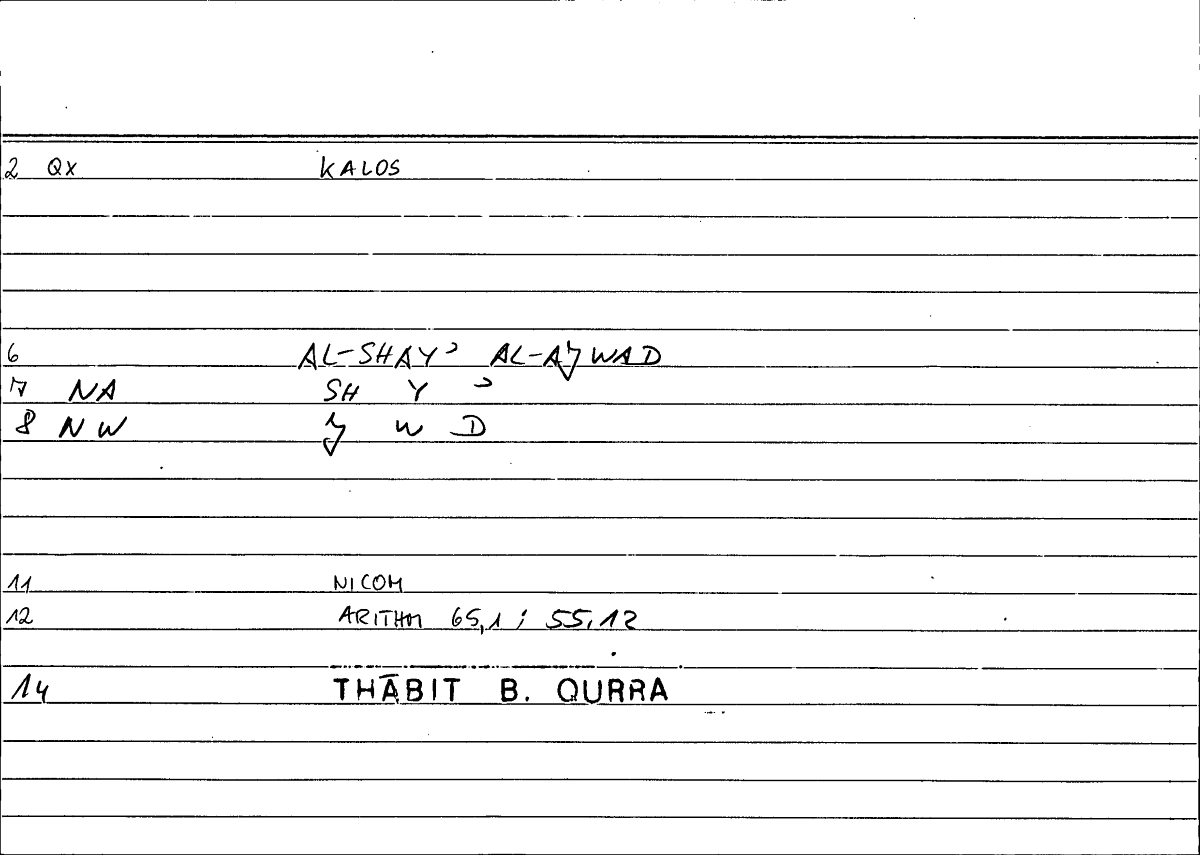 2 QX KALOS
6 AL-SHAYʾ AL-AǰWAD
7 NA SH Y ʾ
8 NW ǰ W D
11 NICOM
12 ARITHM 65,1 ; 55,12
14 THĀBIT B. QURRA